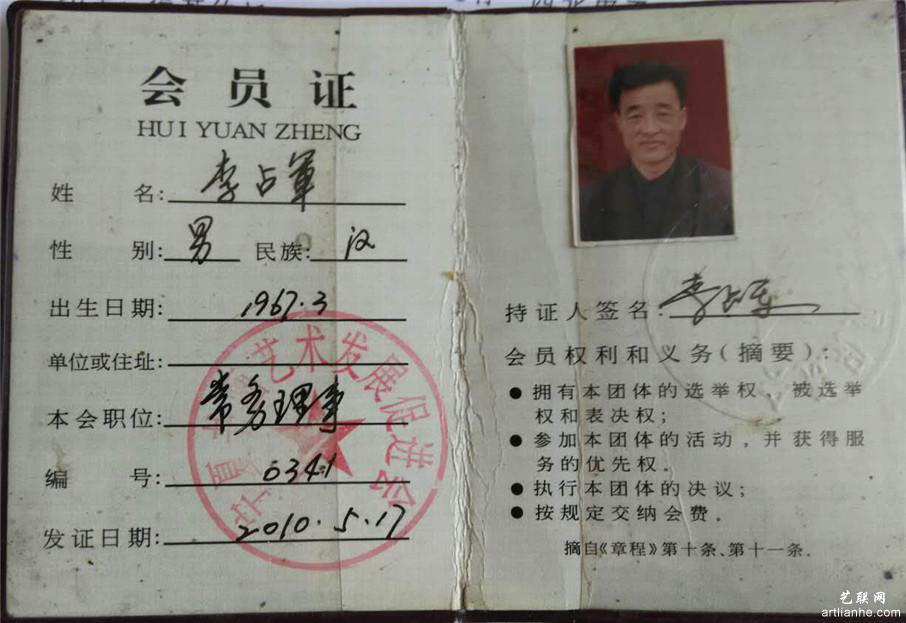 会员证
HUI YUAN ZHENG
姓 名: 李占軍
性 别: 男 民族: 汉
出生日期: 1967.3
单位或住址:
本会职位: 常务理事
编 号: 0341
发证日期: 2010.5.17
宁夏 艺术发展促进会
持证人签名: 李占军
会员权利和义务(摘要):
● 拥有本团体的选举权、被选举
权和表决权;
● 参加本团体的活动,并获得服
务的优先权.
● 执行本团体的决议;
● 按规定交纳会费.
摘自《章程》第十条、第十一条.
艺联网
artlianhe.com